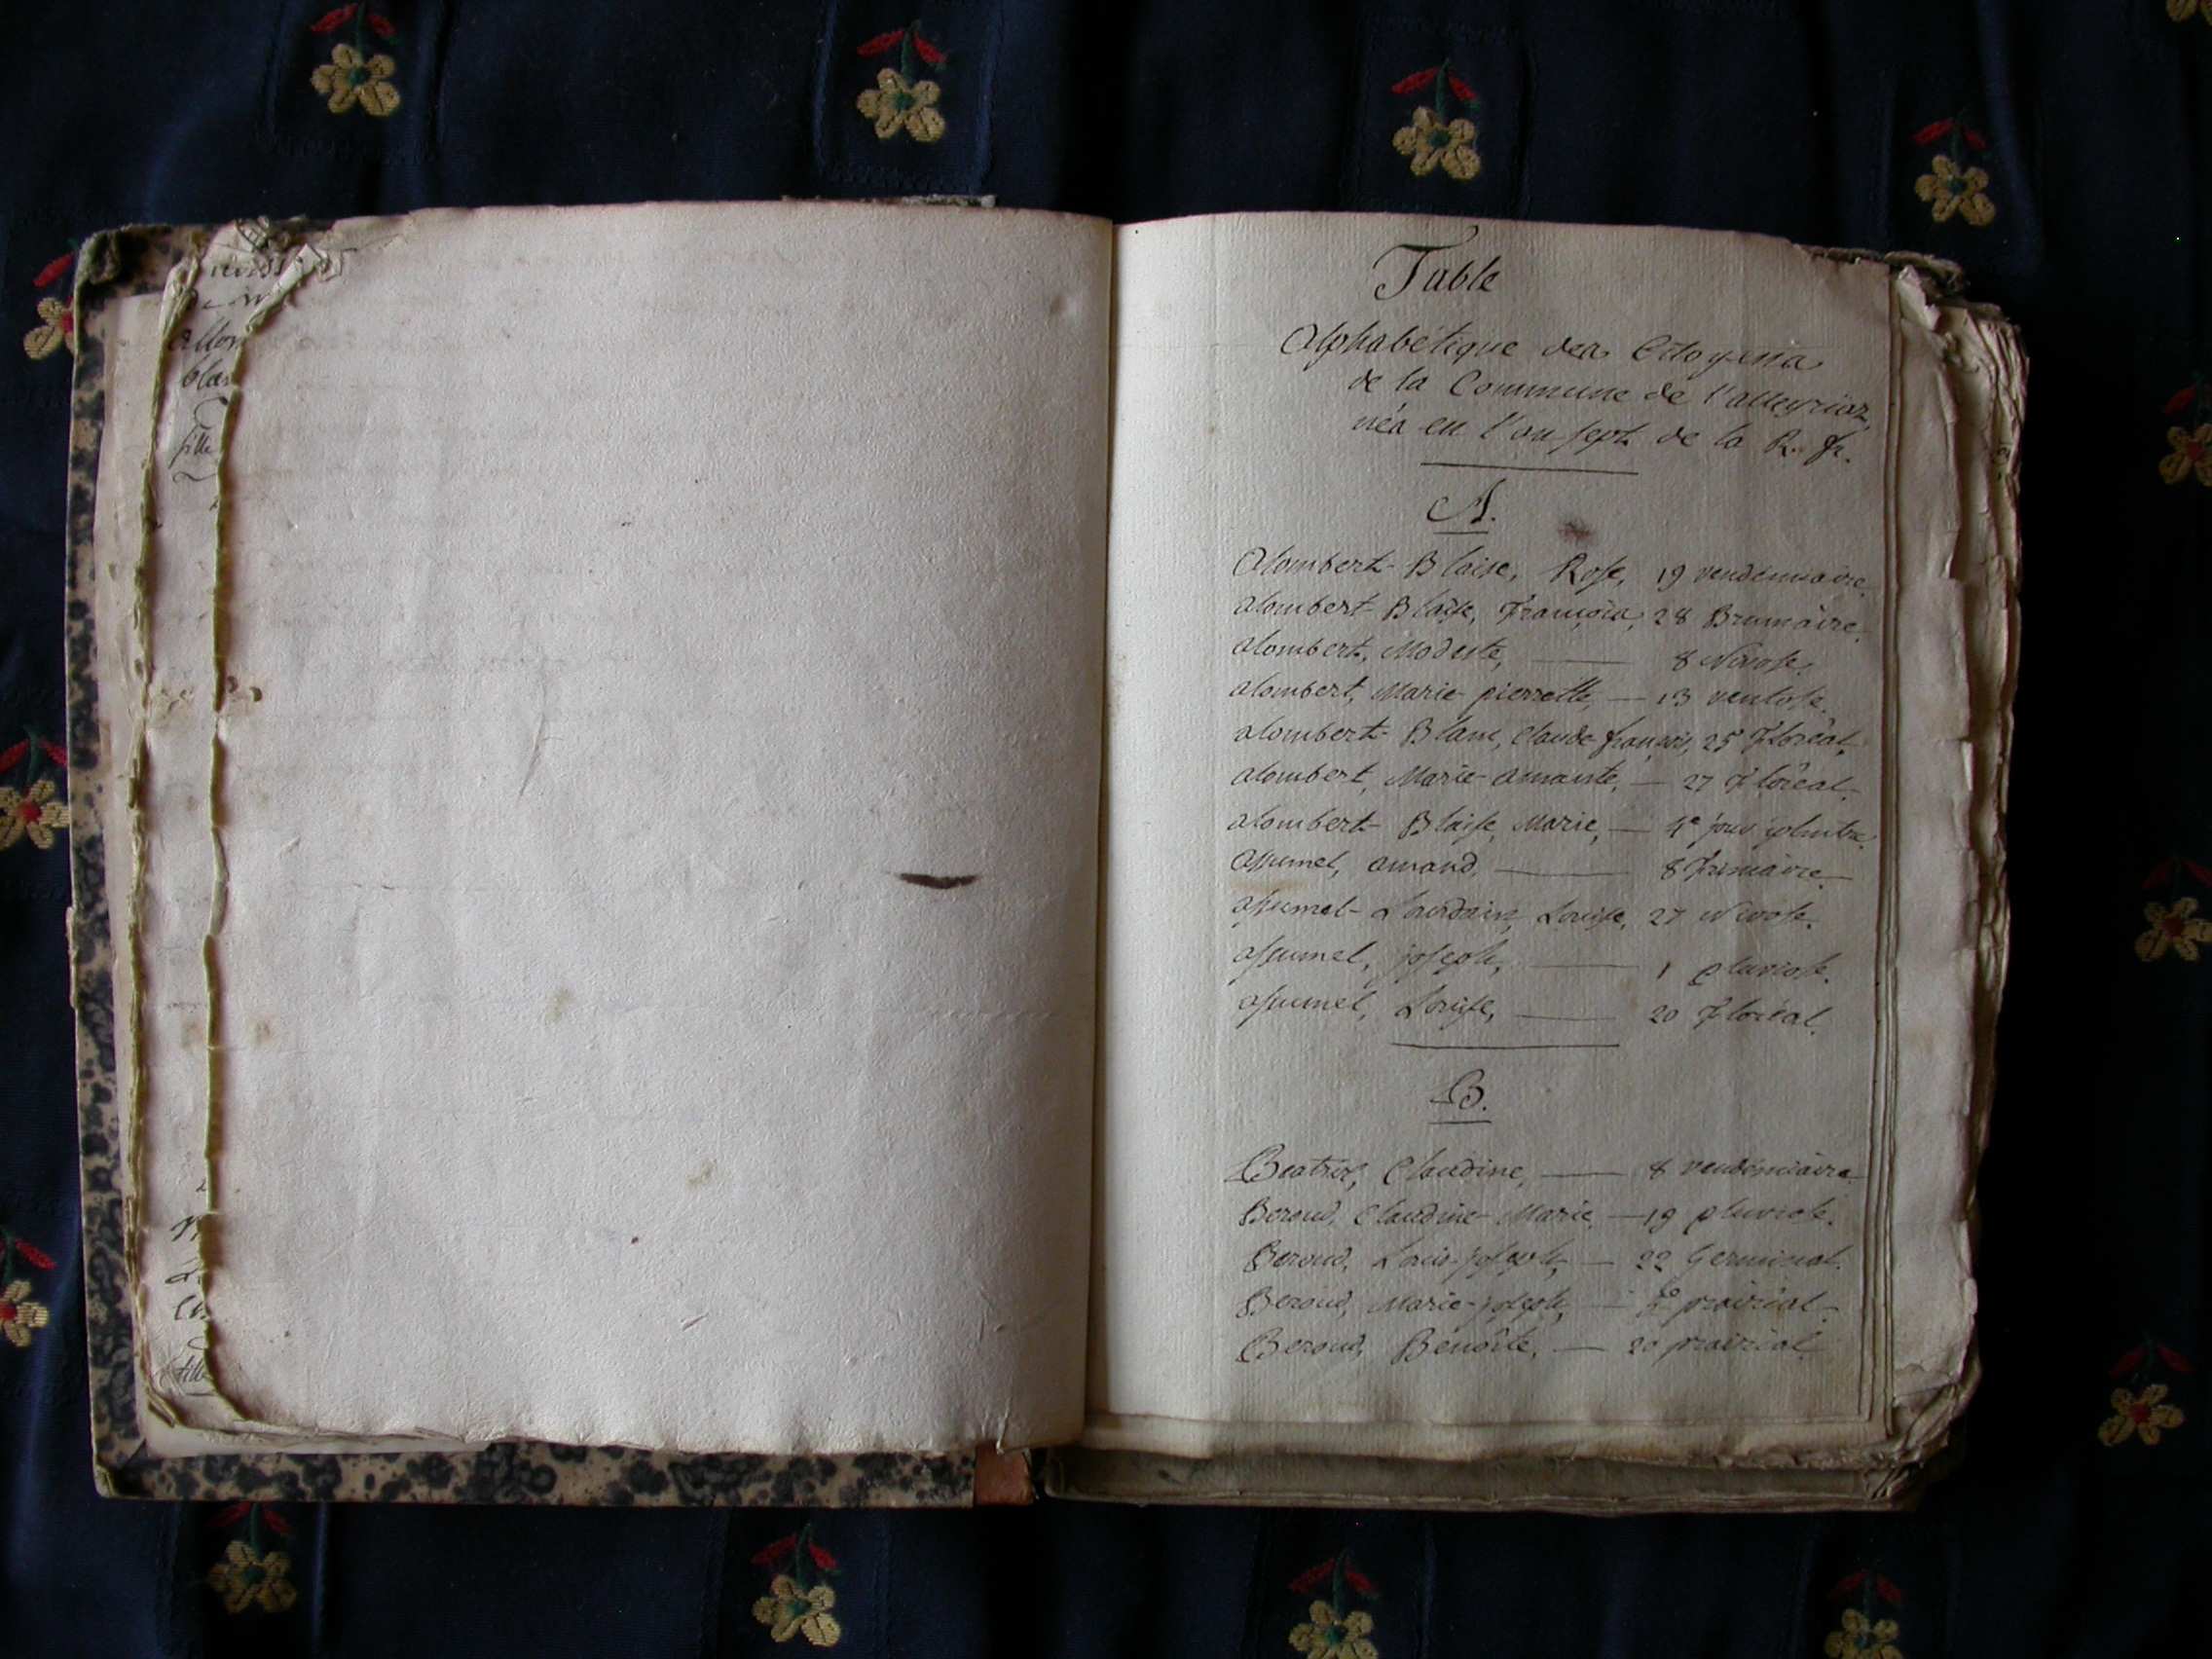 Table
Alphabétique des Citoyens
de la Commune de l'alleyriat
nés en l'an sept de la R. fr.
A.
Alombert-Blaise, Rose, 19 vendémiaire.
alombert-Blaise, François, 28 Brumaire.
alombert, Modeste, 8 Nivose.
alombert, Marie-pierrette, 13 ventose.
alombert-Blanc, Claude-françois, 25 Floréal.
alombert, Marie-amante, 27 Floréal.
alombert-Blaise, Marie, 4e jour
assumel, amand, 8 Frimaire.
assumel-Lourdain, Louise, 27 Nivose.
assumel, joseph, 1 pluviose.
assumel, Louise, 20 Floréal.
B.
Beatrix, Claudine, 8 vendémiaire
Beroud, Claudine-Marie, 19 pluviose.
Beroud, Louis-joseph, 22 Germinal.
Beroud, Marie-joseph, prairial.
Beroud, Benoîte, 20 prairial.